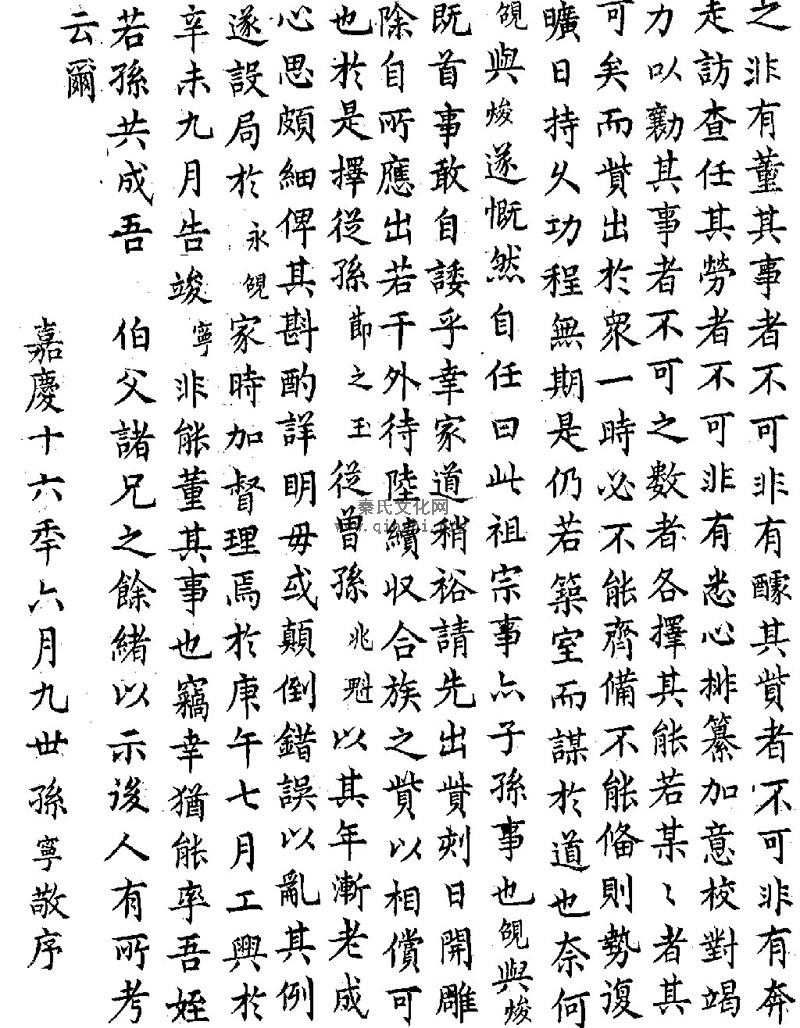 之非有董其事者不可非有醵其貲者不可非有奔
走訪查任其勞者不可非有悉心排纂加意校對竭
力以勷其事者不可之數者各擇其能若某〻者其
可矣而貲出於眾一時必不能齊備不能俻則勢復
曠日持久功程無期是仍若築室而謀於道也奈何
覬與焌遂慨然自任曰此祖宗事亦子孫事也覬與焌
既首事敢自諉乎幸家道稍裕請先出貲刻日開雕
除自所應出若干外待陸續收合族之貲以相償可
也於是擇從孫節之玉從曾孫兆魁以其年漸老成
心思頗細俾其斟酌詳明毋或顛倒錯誤以亂其例
遂設局於永覬家時加督理焉於庚午七月工興於
辛未九月告竣寧非能董其事也竊幸猶能率吾姪
若孫共成吾 伯父諸兄之餘緒以示後人有所考
云爾
嘉慶十六年六月九世孫寧敬序
秦氏文化网